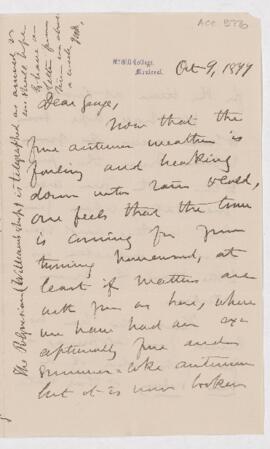 ACC 927b
McGill College,
Montreal.
Oct 9, 1899
Dear George,
Now that the
fine autumn weather is
finding and breaking
down into rain & cold,
one feels that the time
is coming for your
turning homeward, at
least if matters are
with you as here, where
we have had an ex-
ceptionally fine and
summer-like autumn
but it is now broken
The Polynesian (Williams ship) is telegraphed as arriving
so we should hope
to have a
letter from
him in about
a week,